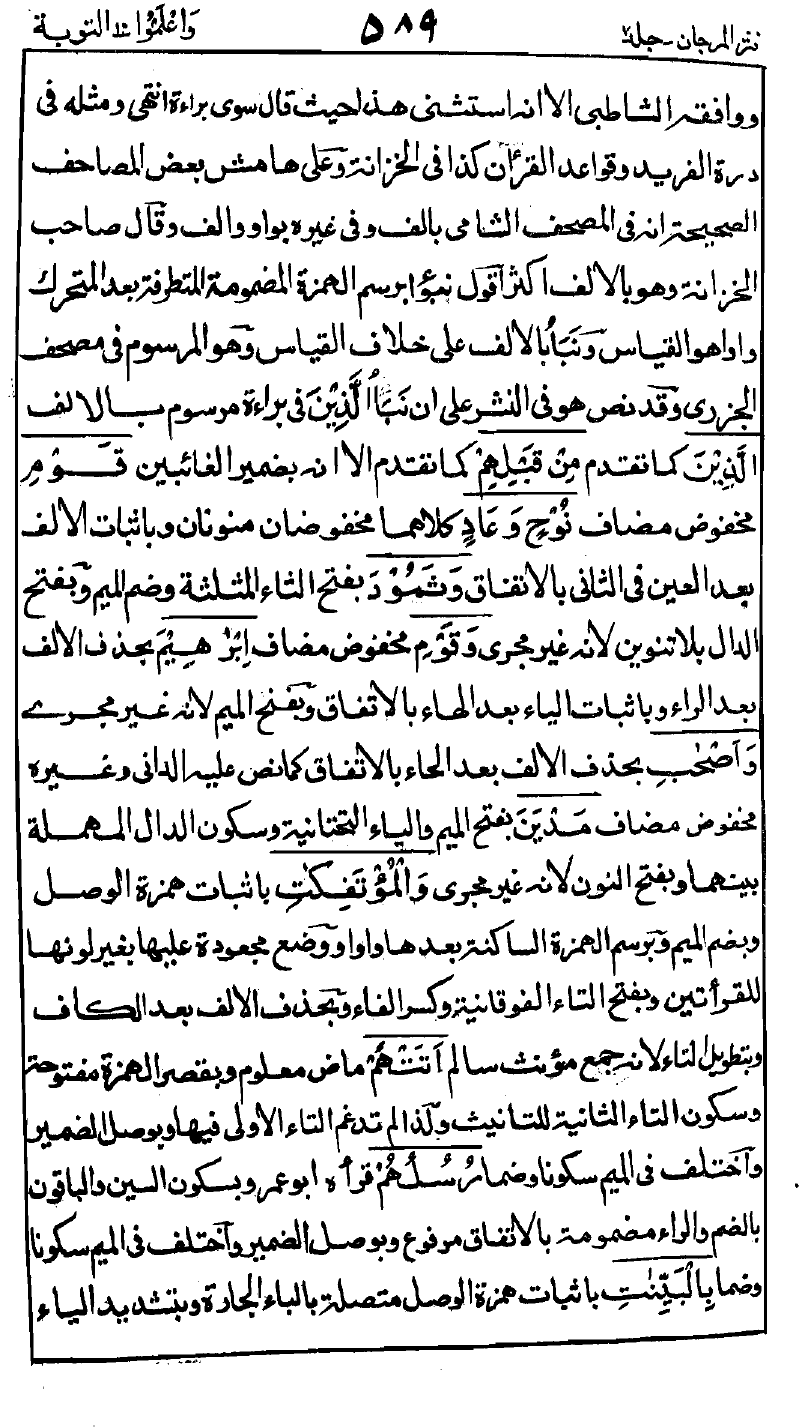 نثر المرجان - جلد۲ ۵۸۹ وَاعْلَمُوْا ۱۰ التوبة
ووافقه الشاطبي الا انه استثنى هذا حيث قال سوى براءة انتهى ومثله فى
درة الفريد وقواعد القرأن كذا فى الخزانة وعلى هامش بعض المصاحف
الصحيحة انه فى المصحف الشامى بالف وفى غيره بواو والف وقال صاحب
الخزانة وهو بالالف اكثر اقول نبؤا برسم الهمزة المضمومة المتطرفة بعد المتحرك
واوا هو القياس وَنَبَأُ بالالف على خلاف القياس وهو المرسوم فى مصحف
الجزرى وقد نص هو فى النشر على ان نَبَأُ الَّذِيْنَ فى براءة مرسوم بالالف
الَّذِيْنَ كما تقدم مِنْ قَبْلِهِمْ كما تقدم الا انه بضمير الغائبين قَوْمِ
مخفوض مضاف نُوْحٍ وَعَادٍ كلاهما مخفوضان منونان وباثبات الالف
بعد العين فى الثانى بالاتفاق وَثَمُوْدَ بفتح الثاء المثلثة وضم الميم وبفتح
الدال بلا تنوين لانه غير مجرى وَقَوْمِ مخفوض مضاف اِبْرٰهِيْمَ بحذف الالف
بعد الراء وباثبات الياء بعد الهاء بالاتفاق وبفتح الميم لانه غير مجرے
وَاَصْحٰبِ بحذف الالف بعد الحاء بالاتفاق كما نص عليه الدانى وغيره
مخفوض مضاف مَدْيَنَ بفتح الميم والياء التحتانية وسكون الدال المهملة
بينهما وبفتح النون لانه غير مجرى وَالْمُؤْتَفِكٰتِ باثبات همزة الوصل
وبضم الميم وبرسم الهمزة الساكنة بعدها واوا ووضع مجعودة عليها بغير لونها
للقرأتين وبفتح التاء الفوقانية وكسر الفاء وبحذف الالف بعد الكاف
وبتطويل التاء لانه جمع مؤنث سالم اَتَتْهُمْ ماض معلوم وبقصر الهمزة مفتوحة
وسكون التاء الثانية للتانيث ولذا لم تدغم التاء الاولى فيها وبوصل الضمير
واختلف فى الميم سكونا وضما رُسُلُهُمْ قرأه ابو عمرو بسكون السين والباقون
بالضم والراء مضمومة بالاتفاق مرفوع وبوصل الضمير واختلف فى الميم سكونا
وضما بِالْبَيِّنٰتِ باثبات همزة الوصل متصلة بالباء الجارة وبتشديد الياء